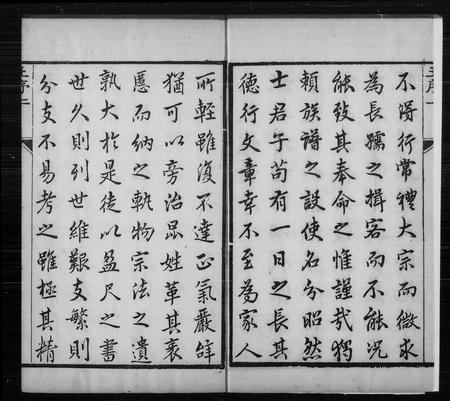 不得行常禮大宗而儆求
為長孺之揖客而不能況
能致其奉命之惟謹哉獨
賴族譜之設使名分昭然
士君子苟有一日之長其
德行文章幸不至為家人
所輕雖復不達正氣嚴辭
猶可以旁治昆姓革其衰
慝而納之軌物宗法之遺
孰大於是徒以盈尺之書
世久則列世維艱支繁則
分支不易考之雖極其精